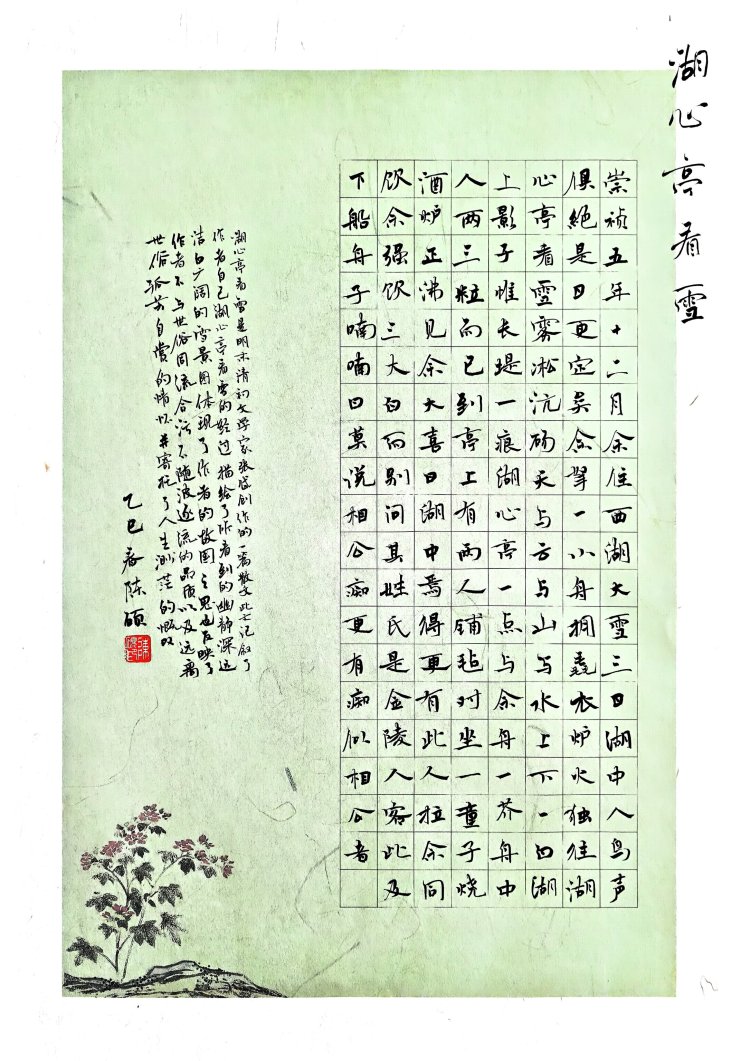 湖心亭看雪
崇祯五年十二月余住西湖大雪三日湖中人鸟声
俱绝是日更定矣余拏一小舟拥毳衣炉火独往湖
心亭看雪雾凇沆砀天与云与山与水上下一白湖
上影子惟长堤一痕湖心亭一点与余舟一芥舟中
人两三粒而已到亭上有两人铺毡对坐一童子烧
酒炉正沸见余大喜曰湖中焉得更有此人拉余同
饮余强饮三大白而别问其姓氏是金陵人客此及
下船舟子喃喃曰莫说相公痴更有痴似相公者
湖心亭看雪是明末清初文学家张岱创作的一篇散文此文记叙了
作者自己湖心亭看雪的经过描绘了所看到的幽静深远
洁白广阔的雪景图体现了作者的故国之思也反映了
作者不与世俗同流合污不随波逐流的品质以及远离
世俗孤芳自赏的情怀并寄托了人生渺茫的慨叹
乙巳春陈硕